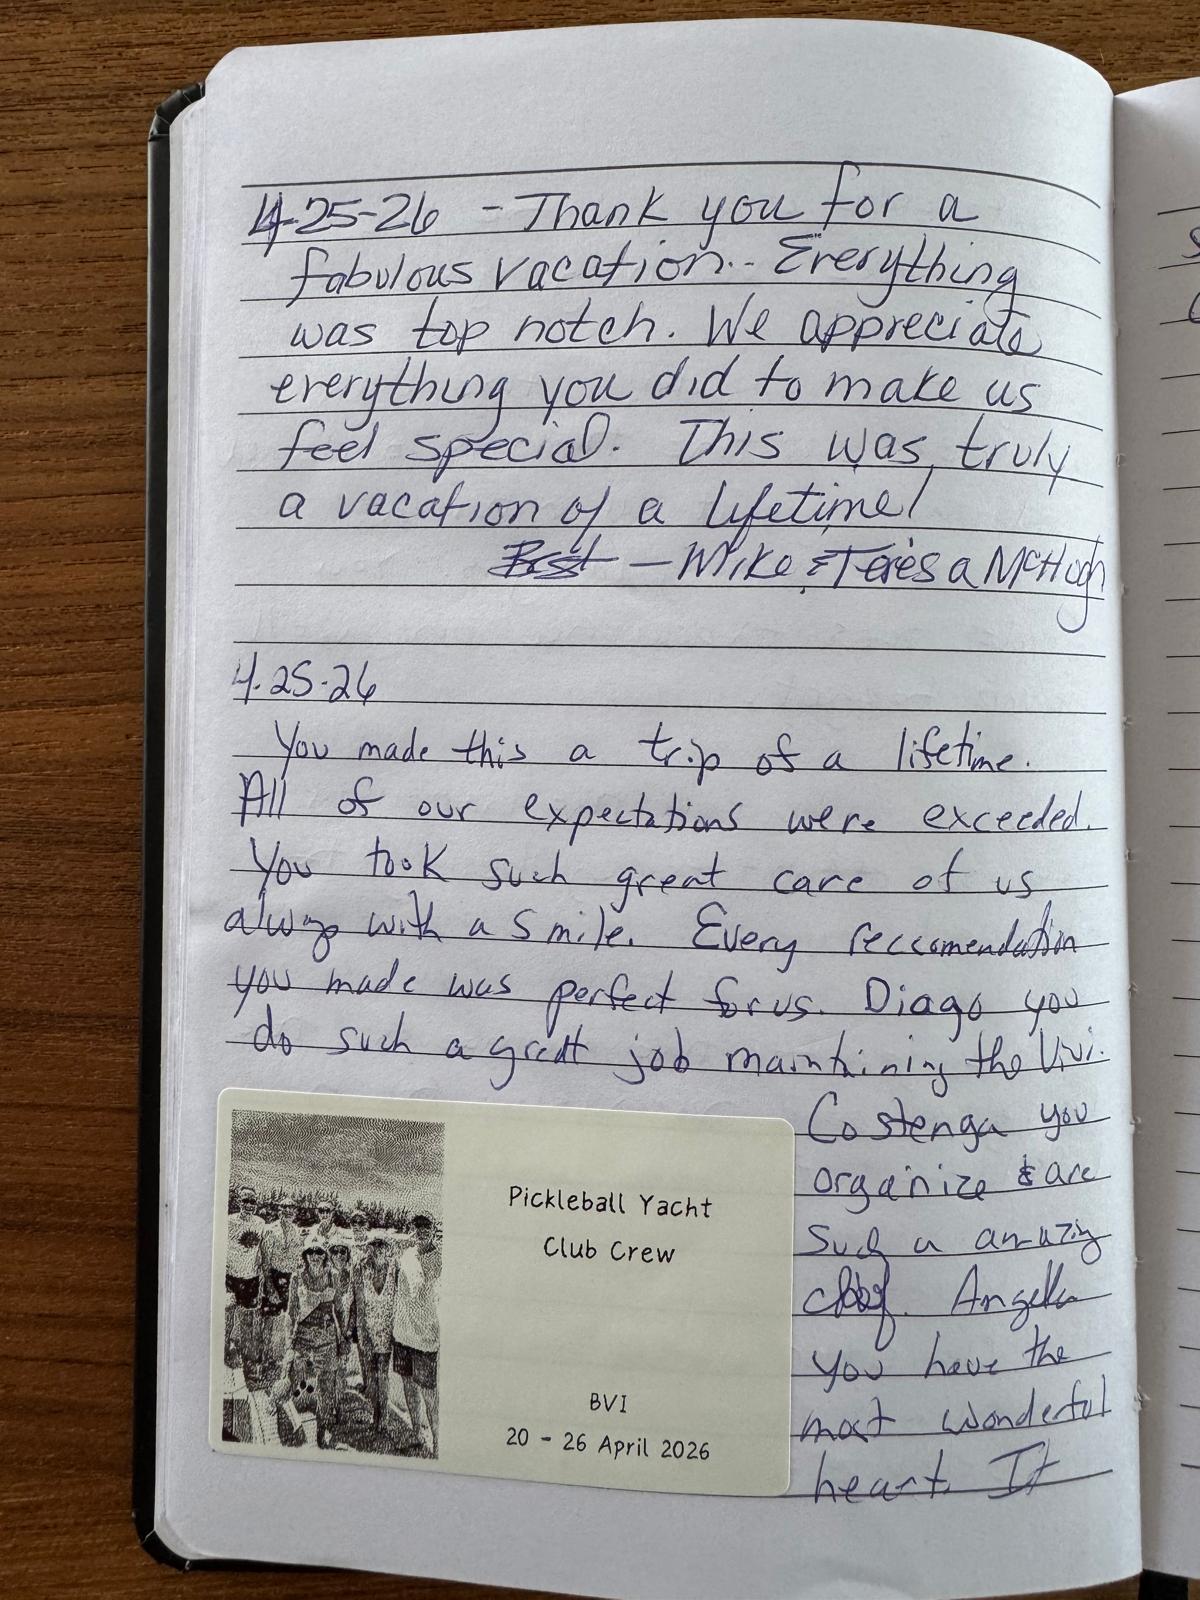 4-25-26 - Thank you for a
fabulous vacation.. Everything
was top notch. We appreciate
everything you did to make us
feel special. This was truly
a vacation of a lifetime!
Best — Mike & Teresa McHugh
4.25.26
You made this a trip of a lifetime.
All of our expectations were exceeded.
You took such great care of us
always with a smile. Every reccomendation
you made was perfect for us. Diago you
do such a great job maintaining the Vivi.
Costenga you
organize & are
such a amazing
chef. Angella
you have the
most wonderful
heart. It
Pickleball Yacht
Club Crew
BVI
20 - 26 April 2026